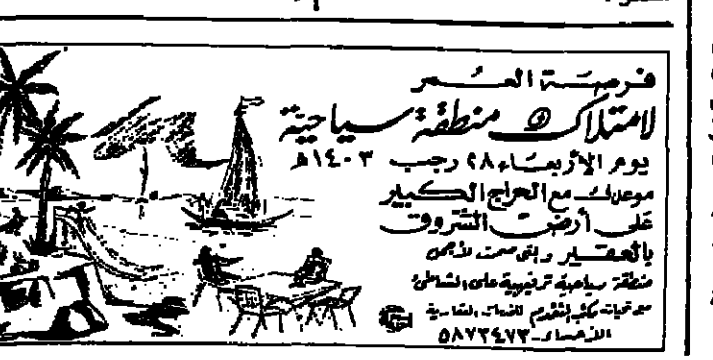 فرصة العمر
لامتلاك منطقة سياحية
يوم الأربعاء ٢٨ رجب ١٤٠٣هـ
موعدك مع الحراج الكبير
على أرض الشروق
بالعقير والتي صممت لأجمل
منطقة سياحية ترفيهية على الشاطئ
مع تحيات مكتب التقدم للخدمات العقارية
الأحساء - ٥٨٧٣٤٧٣